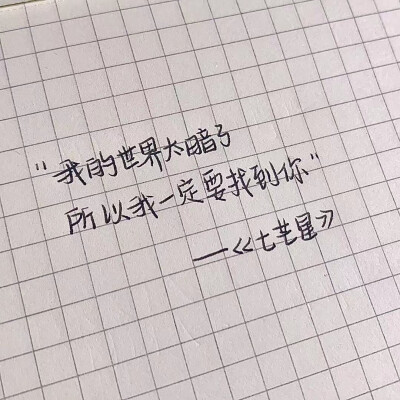 "我的世界太暗了
所以我一定要找到你"
——《七芒星》